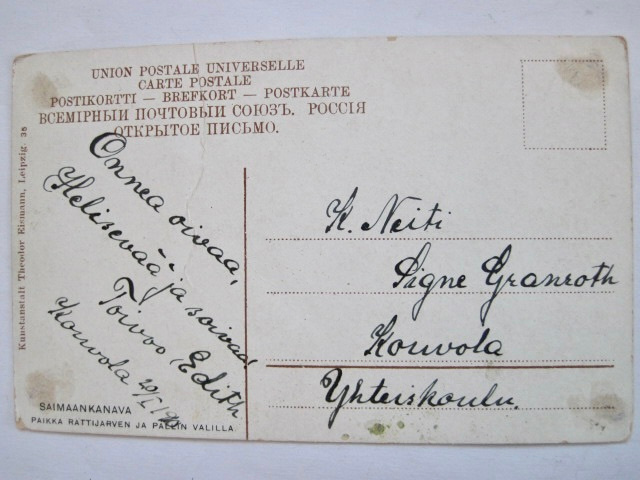 UNION POSTALE UNIVERSELLE
CARTE POSTALE
POSTIKORTTI — BREFKORT — POSTKARTE
ВСЕМІРНЫЙ ПОЧТОВЫЙ СОЮЗЪ. РОССІЯ
ОТКРЫТОЕ ПИСЬМО.
Kunstanstalt Theodor Eismann, Leipzig. 35
Onnea oivaa,
Helisevää ja soivaa!
Toivoo Edith
Kouvola 20/I
K. Neiti
Signe Granroth
Kouvola
Yhteiskoulu.
SAIMAANKANAVA
PAIKKA RATTIJARVEN JA PALLIN VALILLA.